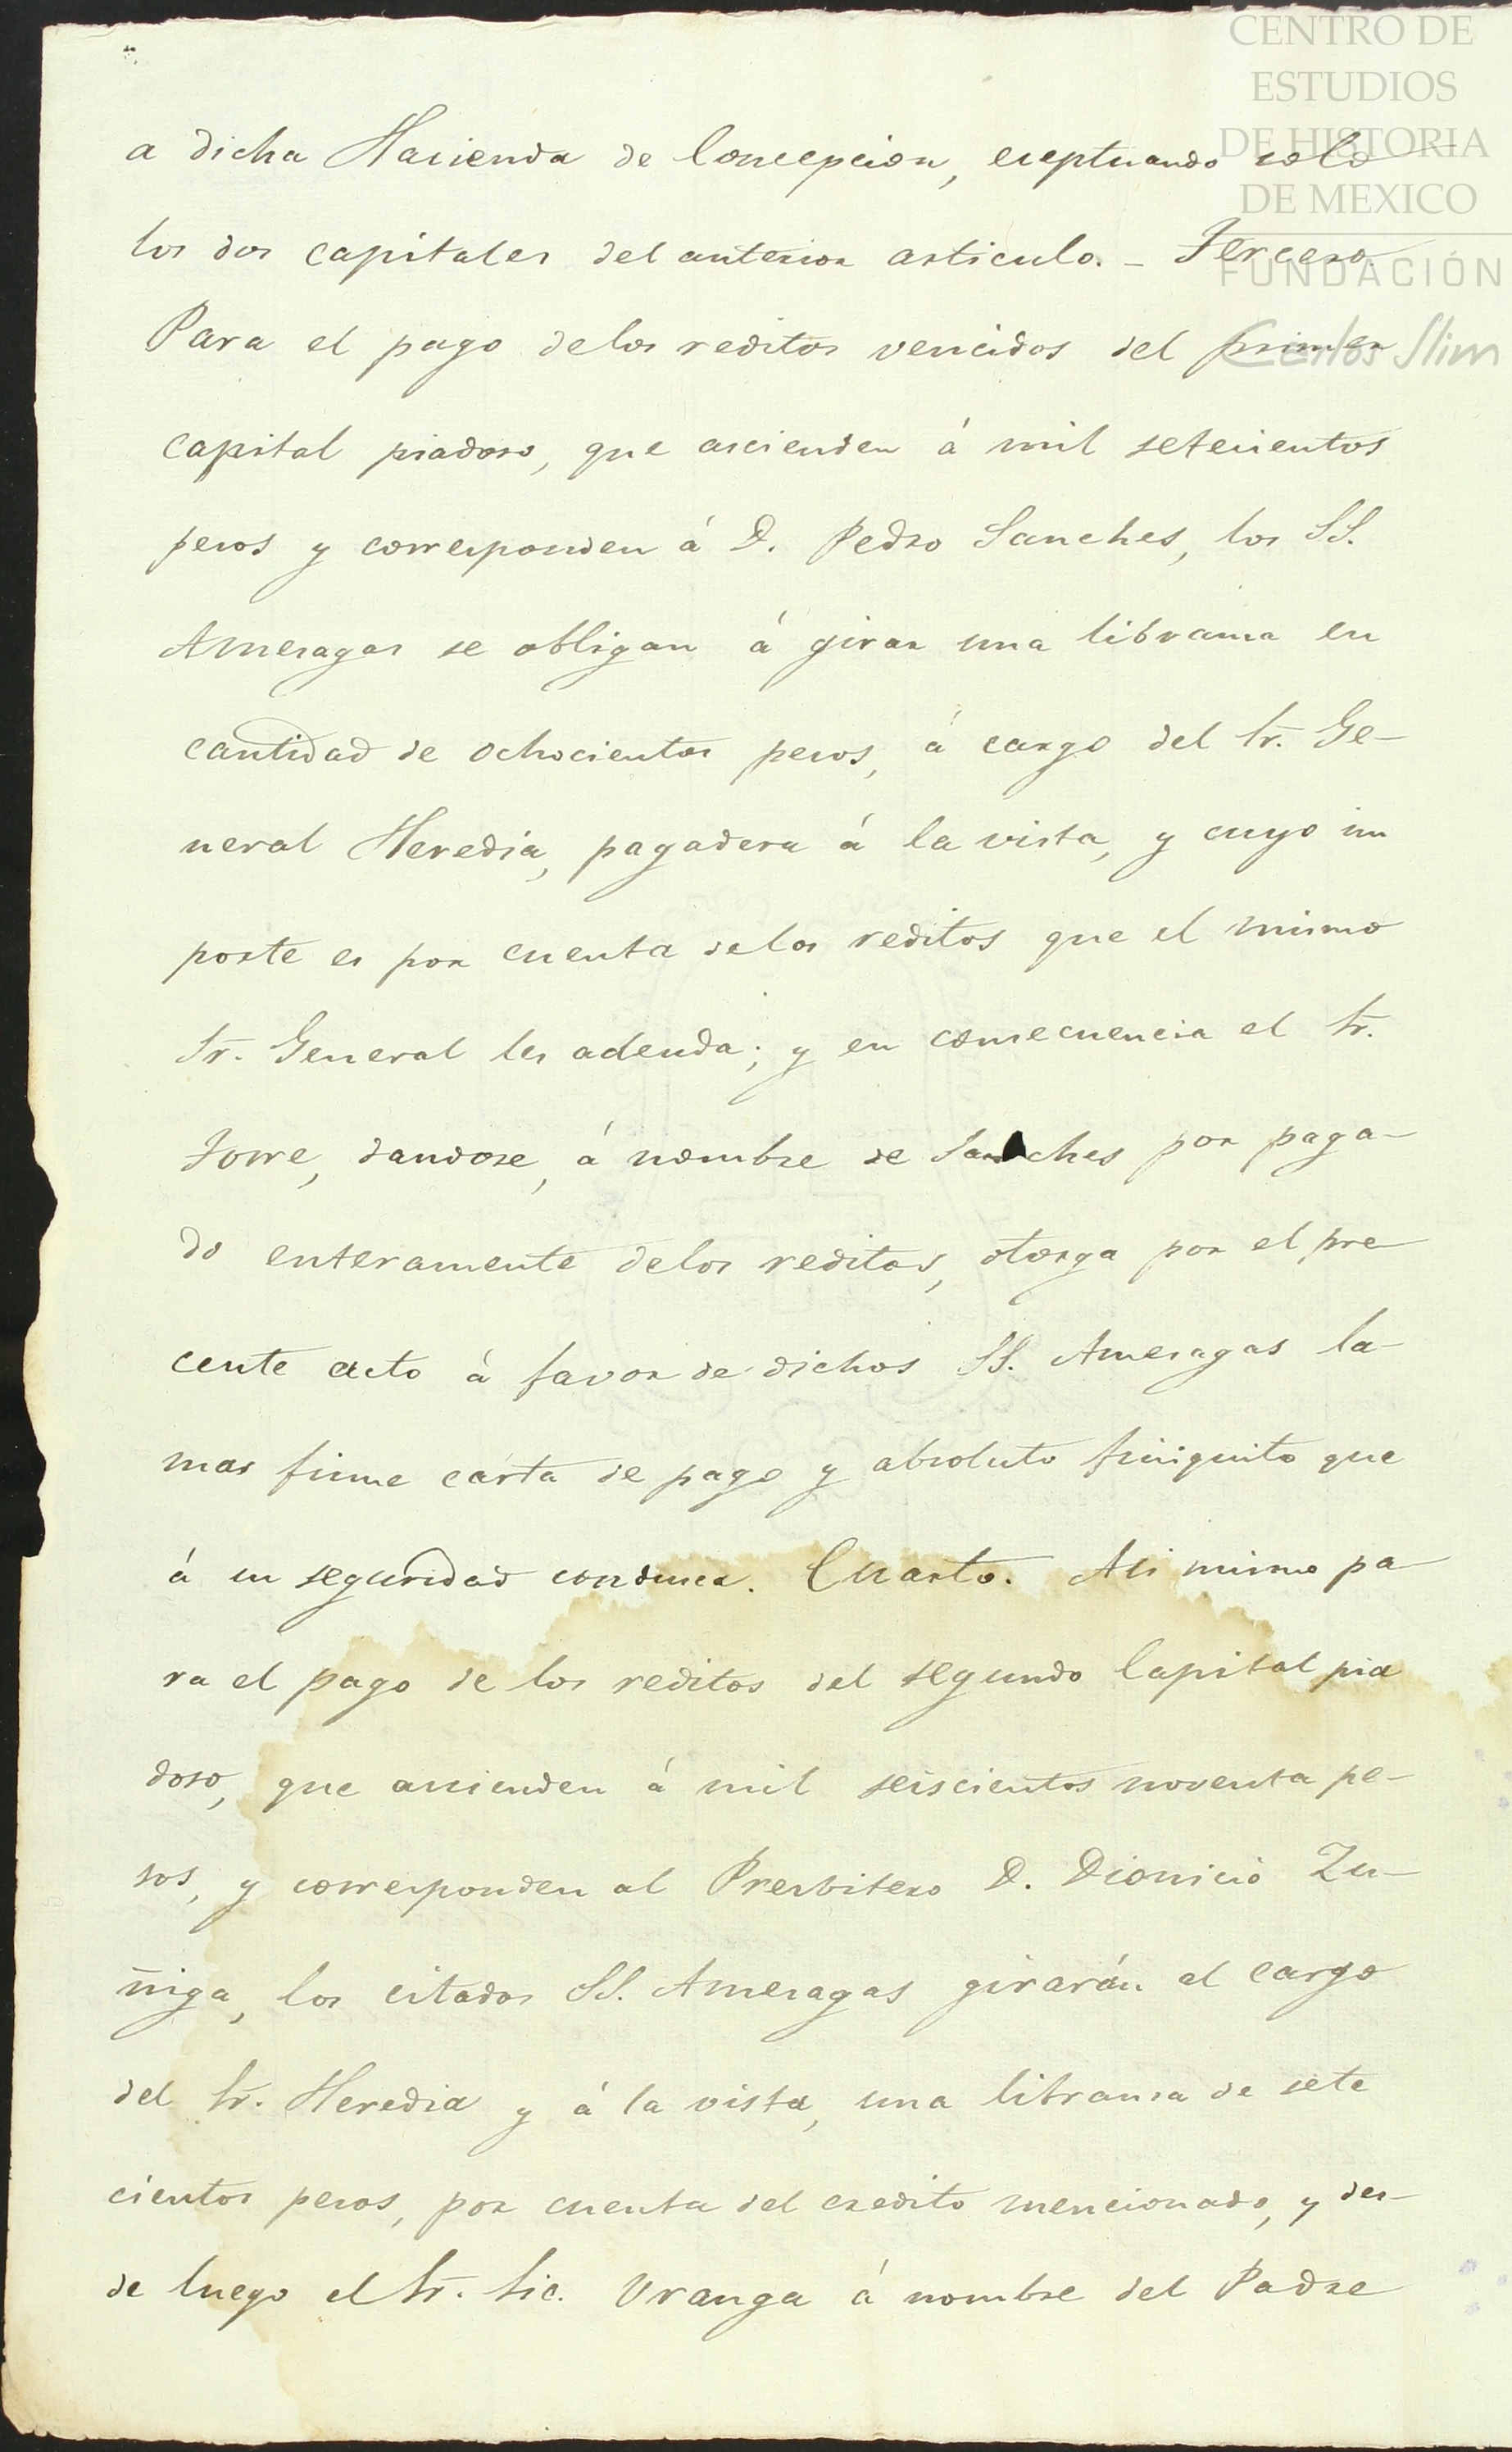 CENTRO DE
ESTUDIOS
DE HISTORIA
DE MEXICO
FUNDACIÓN
Carlos Slim
a dicha Hacienda de Concepcion, eceptuando solo
los dos capitales del anterior articulo. - Tercero.
Para el pago delos reditos vencidos del primer
capital piadoso, que ascienden á mil setecientos
pesos y corresponden á D. Pedro Sanches, los SS.
Amesagas se obligan á girar una libransa en
cantidad de ochocientos pesos, á cargo del Sr. Ge-
neral Heredia, pagadera á la vista, y cuyo im
porte es por cuenta delos reditos que el mismo
Sr. General les adeuda; y en consecuencia el Sr.
Torre, dandose, á nombre de Sanches por paga-
do enteramente delos reditos, otorga por el pre
cente acto á favor de dichos SS. Amesagas la-
mas firme carta de pago y absoluto finiquito que
á su seguridad condusca. Cuarto. Asi mismo pa
ra el pago de los reditos del segundo Capital pia
doso, que ascienden á mil seiscientos noventa pe-
sos, y corresponden al Presbitero D. Dionicio Zu-
ñiga, los citados SS. Amesagas girarán al cargo
del Sr. Heredia y á la vista, una libransa de sete
cientos pesos, por cuenta del credito mencionado, y des-
de luego el Sr. Lic. Uranga á nombre del Padre